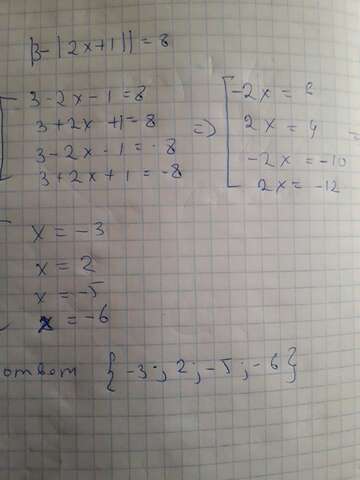 |3-|2x+1||=8
3-2x-1=8
3+2x+1=8 => -2x=
3-2x-1=-8 2x=4
3+2x+1=-8 -2x=-10
2x=-12
x=-3
x=2
x=-5
x=-6
ответ {-3; 2; -5; -6}